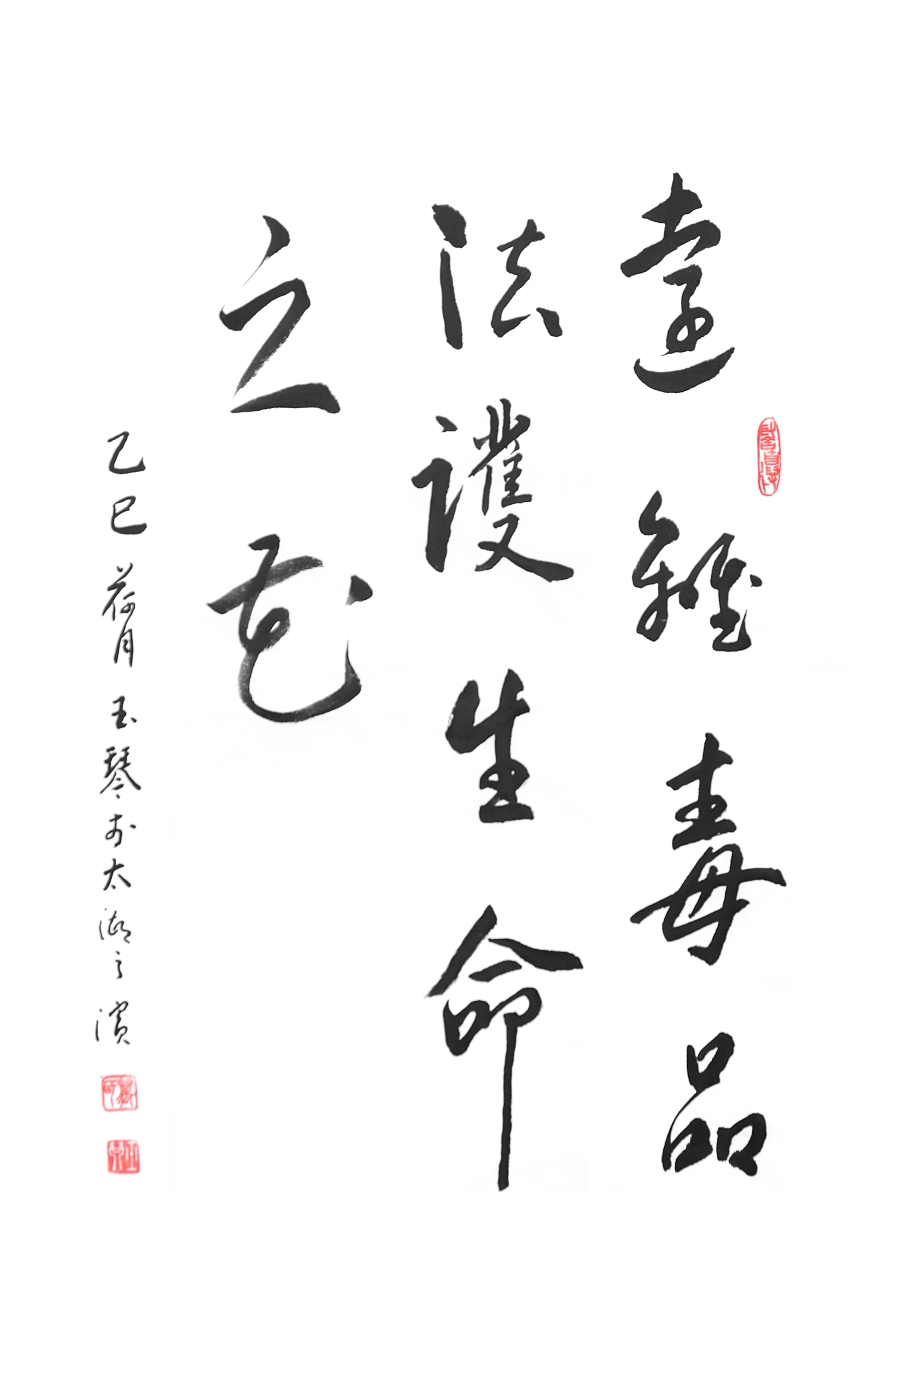 遠離毒品
法護生命
之花
乙巳荷月玉琴於太湖之濱